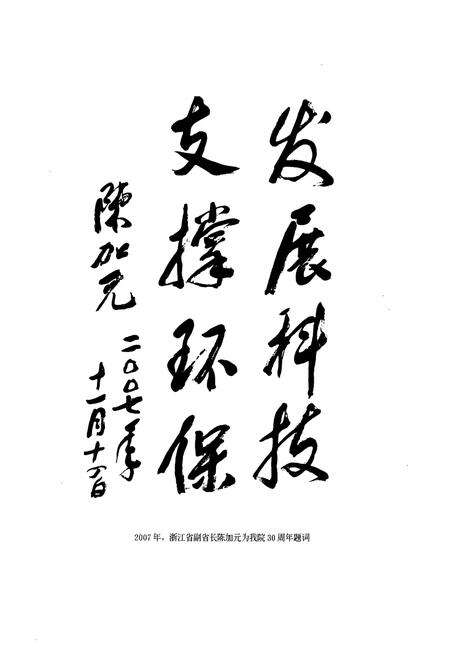 发展科技
支撑环保
陳加元
二〇〇七年
十一月十六日
2007年，浙江省副省长陈加元为我院30周年题词